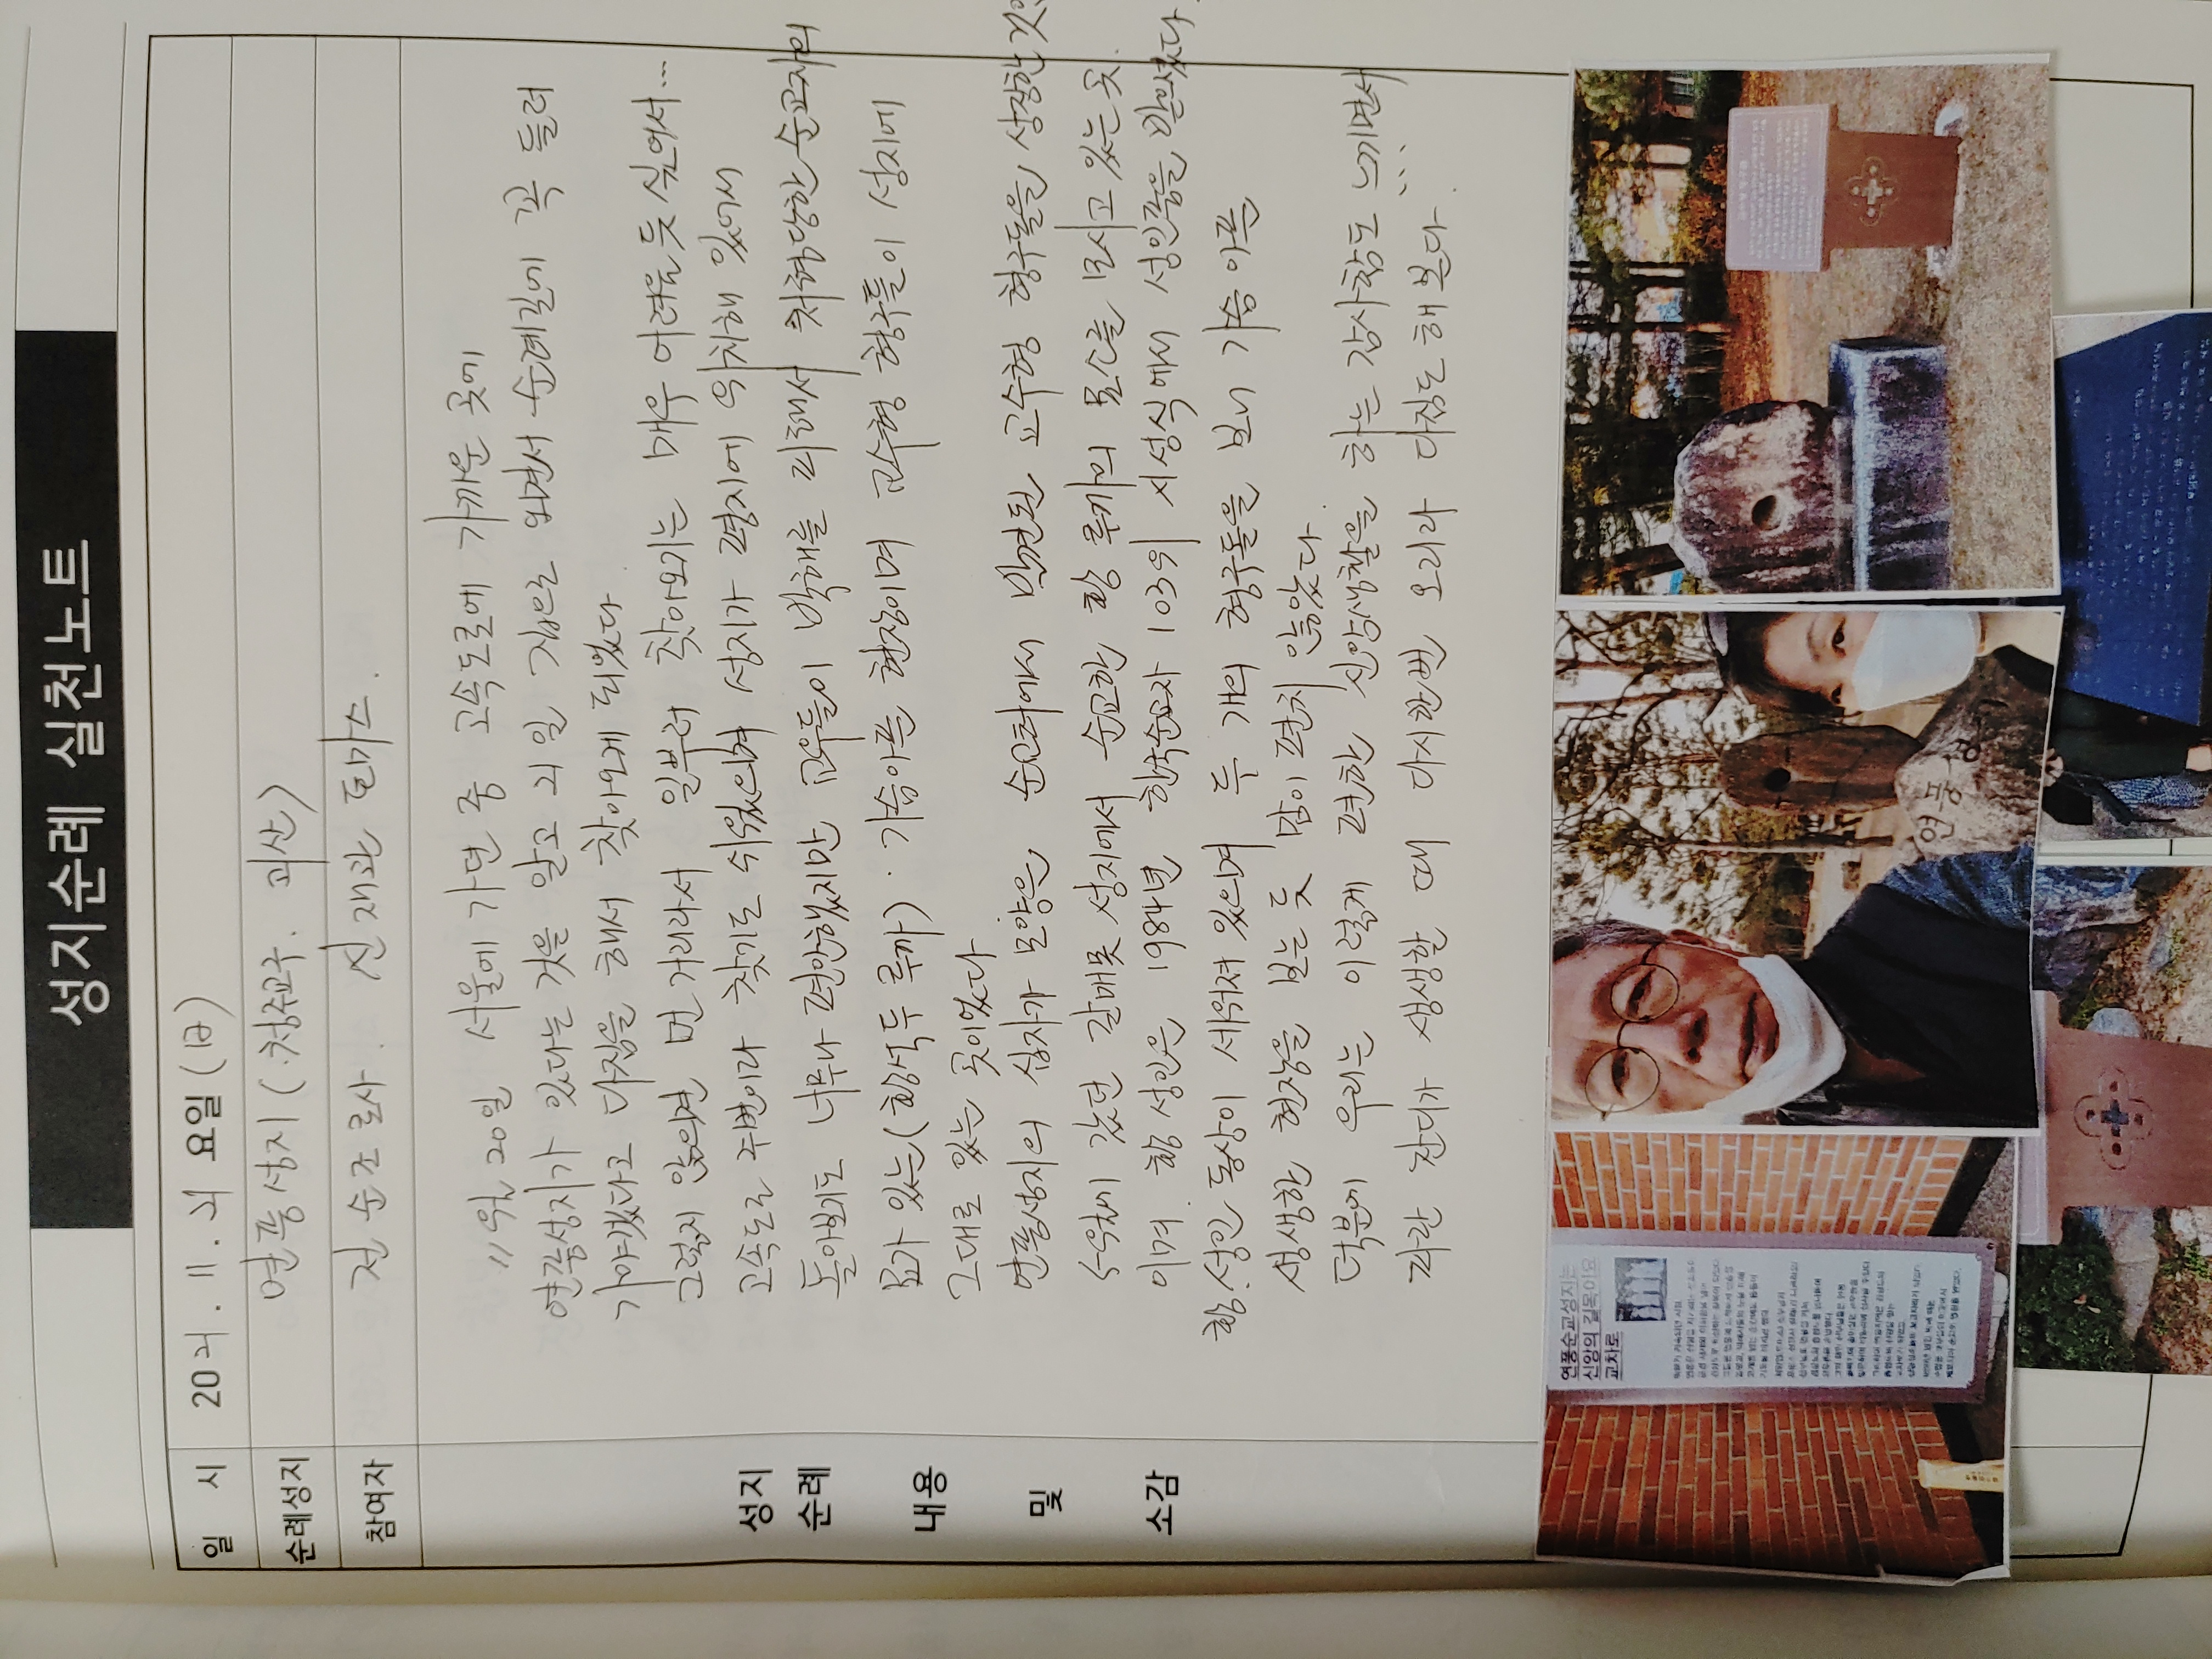 성지순례 실천노트
일 시 2021. 11. 21 요일 (일)
순례성지 연풍성지 (청주교구. 괴산)
참여자 전순조 로사. 신재관 토마스.
성지
순례
내용
및
소감
11월 20일 서울에 가던 중 고속도로에 가까운 곳에
연풍성지가 있다는 것을 알고 21일 집으로 오면서 순례길에 꼭 들려
가야겠다고 다짐을 해서 찾아오게 되었다
그렇지 않으면 먼 거리라서 일부러 찾아오기는 매우 어려울 듯 싶어서...
고속도로 주변이라 찾기도 쉬웠으며 성지가 평지에 위치해 있어서
돌아보기도 너무나 편안했지만 교우들이 박해를 피해서 처형당한 순교자의
묘가 있는 (황석두 루까). 가슴아픈 현장이며 교수형 형구돌이 성지에
그대로 있는 곳이었다
연풍성지의 십자가 모양은 순교터에서 발견된 교수형 형구돌을 상징한 것
5-6위에 갔던 갈매못 성지에서 순교한 황 루까의 묘소를 모시고 있는 곳
이며. 황 성인은 1984년 한국순교자 103위 시성식에서 성인품을 받았다.
황.성인 동상이 세워져 있으며 두 개의 형구돌을 보니 가슴아픈
생생한 현장을 보는 듯 맘이 편치 않았다.
덕분에 우리는 이렇게 편한 신앙생활을 하는 감사함도 느끼면서...
작은 잔디가 생생할 때 다시한번 오리라 다짐도 해 본다.
연풍순교성지는
신앙의 길목이요
교차로
연풍성